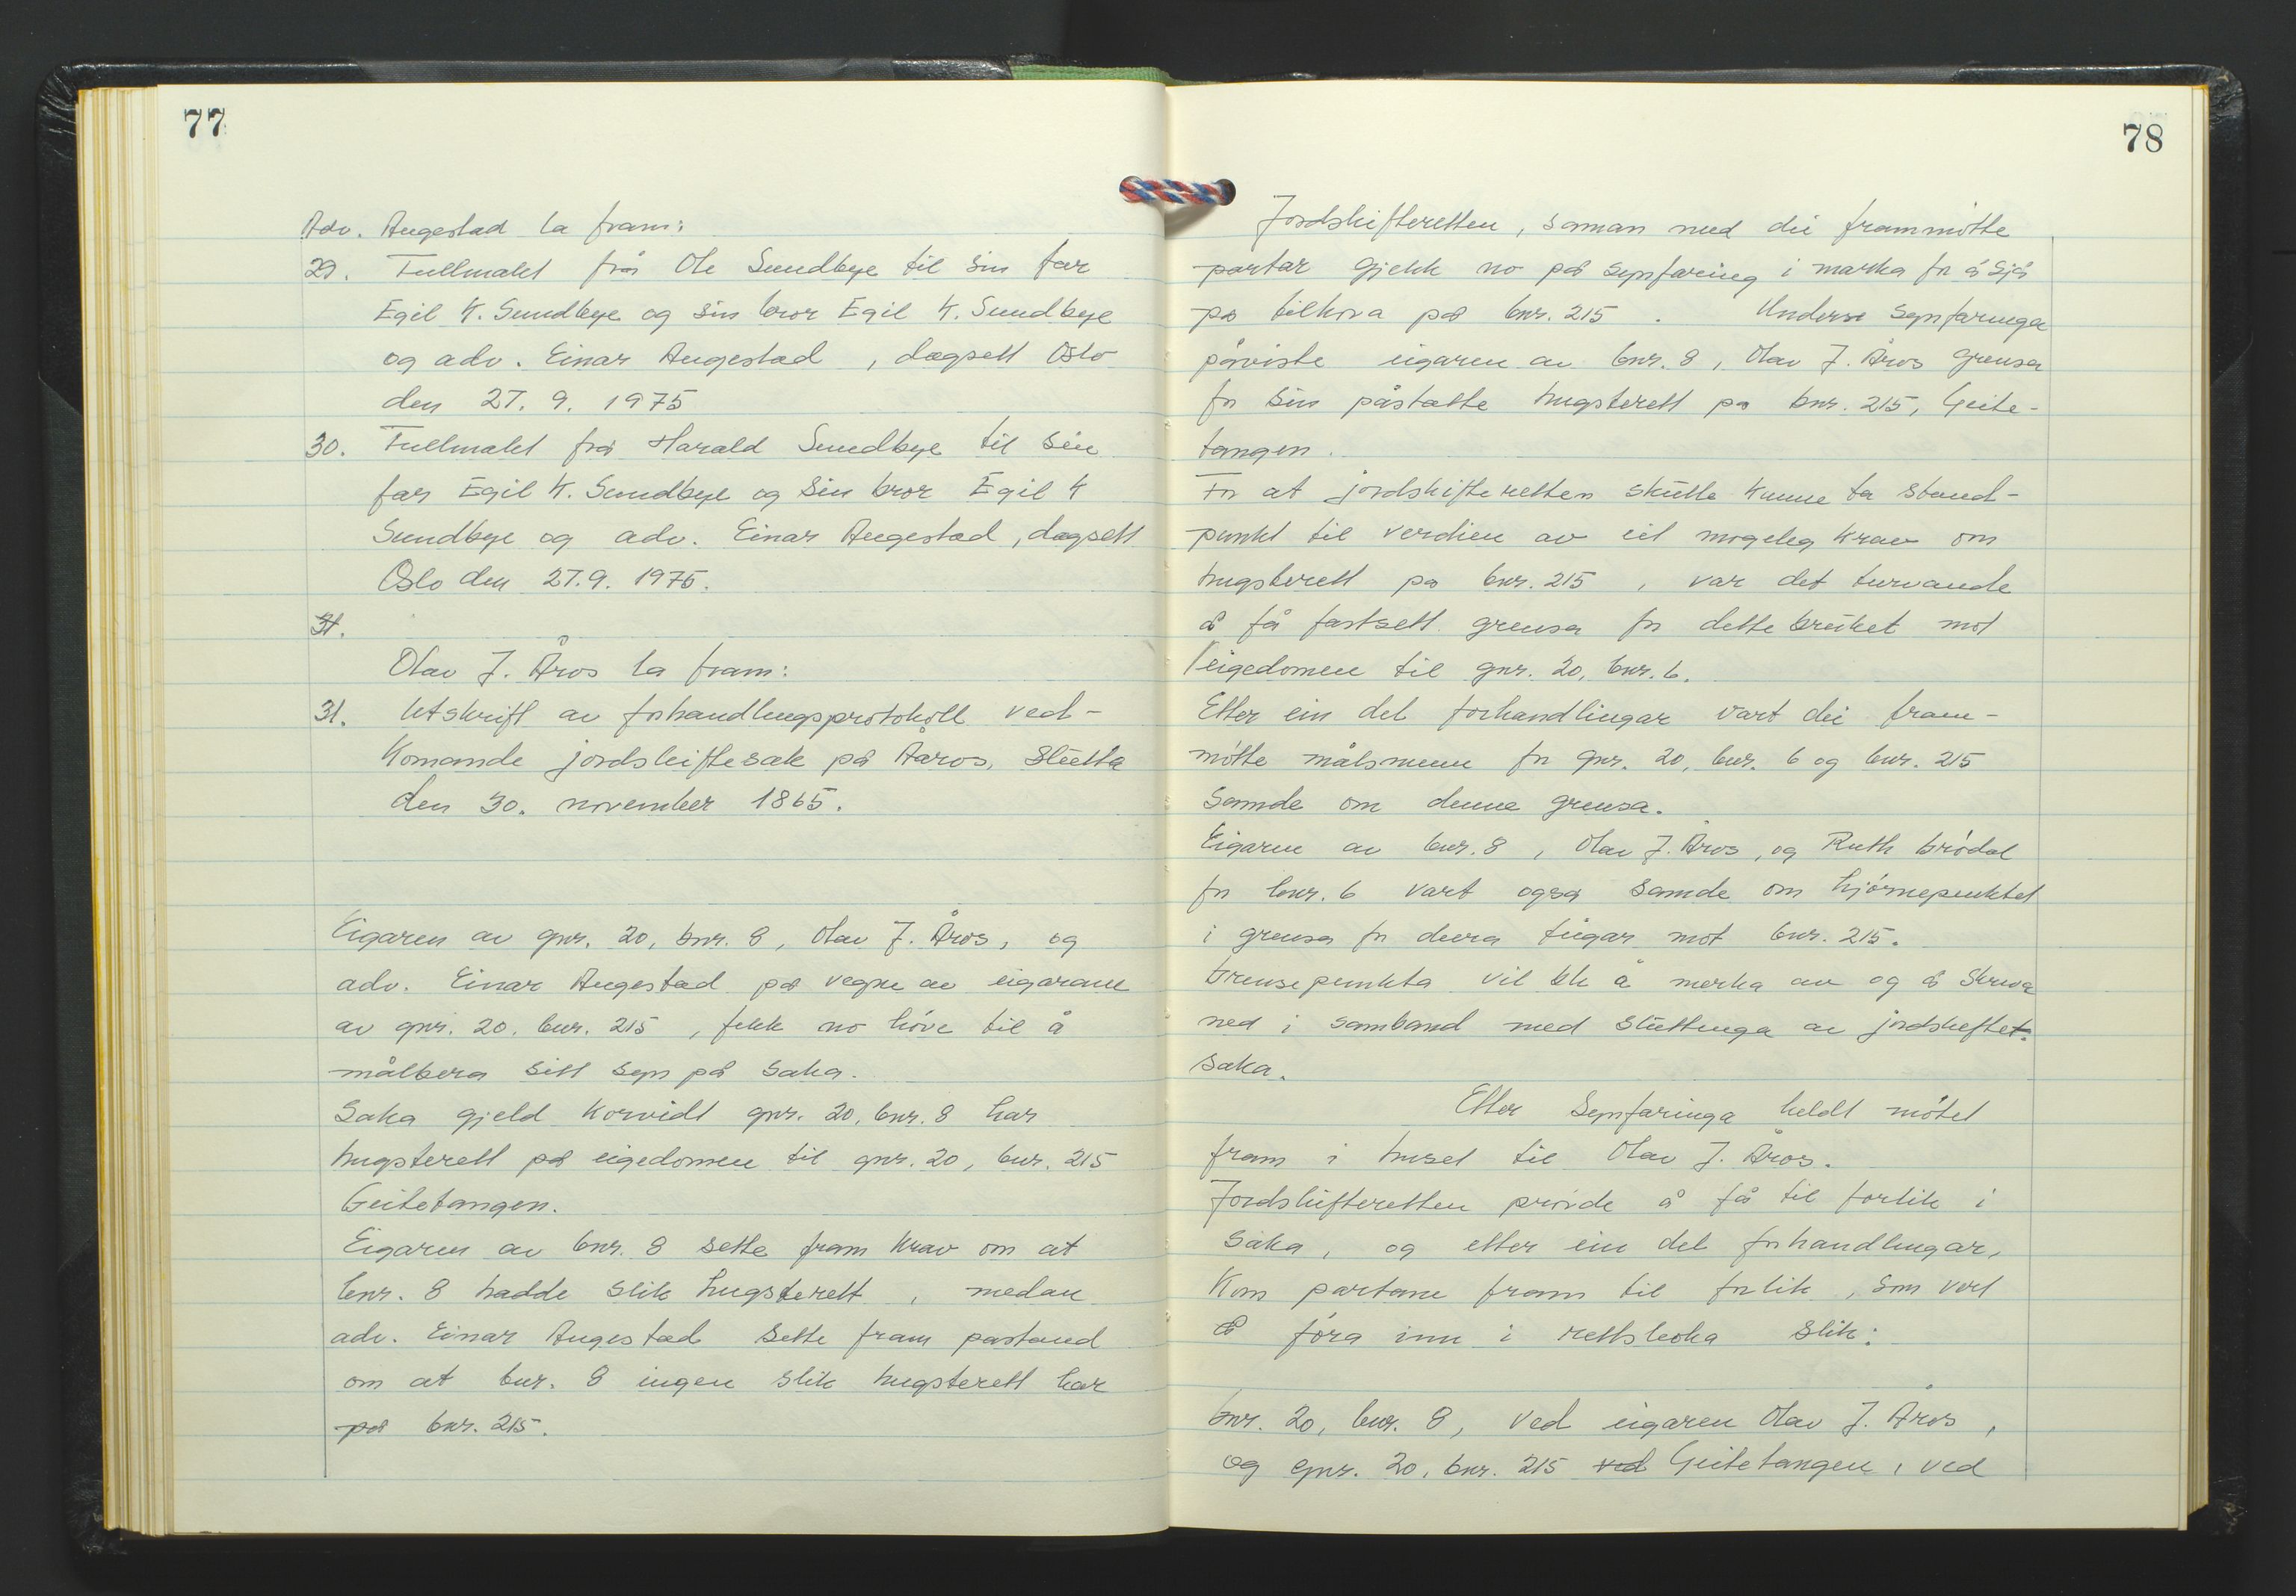 77
Adv. Augestad la fram:
29. Fullmakt frå Ole Sundbye til sin far
Egil K. Sundbye og sin bror Egil K. Sundbye
og adv. Einar Augestad, dagsett Oslo
den 27. 9. 1975
30. Fullmakt frå Harald Sundbye til sin
far Egil K. Sundbye og sin bror Egil K
Sundbye og adv. Einar Augestad, dagsett
Oslo den 27.9. 1975.
31.
Olav J. Åros la fram:
31. Utskrift av forhandlingsprotokoll ved-
komande jordskiftesak på Åaros, slutta
den 30. november 1865.
Eigaren av gnr. 20, bnr. 8, Olav J. Åros, og
adv. Einar Augestad på vegne av eigarane
av gnr. 20, bnr. 215, fekk no høve til å
målbera sitt syn på saka.
Saka gjeld korvidt gnr. 20, bnr. 8 har
hugsterett på eigedomen til gnr. 20, bnr. 215
Geitetangen.
Eigaren av bnr. 8 sette fram krav om at
bnr. 8 hadde slik hugsterett, medan
adv. Einar Augestad sette fram pastand
om at bnr. 8 ingen slik hugsterett har
på bnr. 215.
78
Jordskifteretten, saman med dei frammøtte
partar gjekk no på synfaring i marka for å sjå
på tilhøva på bnr. 215. Under synfaringa
påviste eigaren av bnr. 8, Olav J. Åros grensa
for sin påståtte hugsterett på bnr. 215, Geite-
tangen.
For at jordskifteretten skulle kunne ta stand-
punkt til verdien av eit mogeleg krav om
hugsterett på bnr. 215, var det turvande
å få fastsett grensa for dette bruket mot
eigedomen til gnr. 20, bnr. 6.
Etter ein del forhandlingar vart dei fram-
møtte målsmenn for gnr. 20, bnr. 6 og bnr. 215
samde om denne grensa.
Eigaren av bnr. 8, Olav J. Åros, og Ruth Grødal
for bnr. 6 vart også samde om hjørnepunktet
i grensa for deira teigar mot bnr. 215.
Grensepunkta vil bli å merka av og å skriva
ned i samband med sluttinga av jordskifte-
saka.
Etter synfaringa heldt møtet
fram i huset til Olav J. Åros.
Jordskifteretten prøvde å få til forlik i
saka, og etter ein del forhandlingar,
kom partane fram til forlik, som vert
å føra inn i rettsboka slik:
Gnr. 20, bnr. 8, ved eigaren Olav J. Åros,
og gnr. 20, bnr. 215 ved Geitetangen, ved